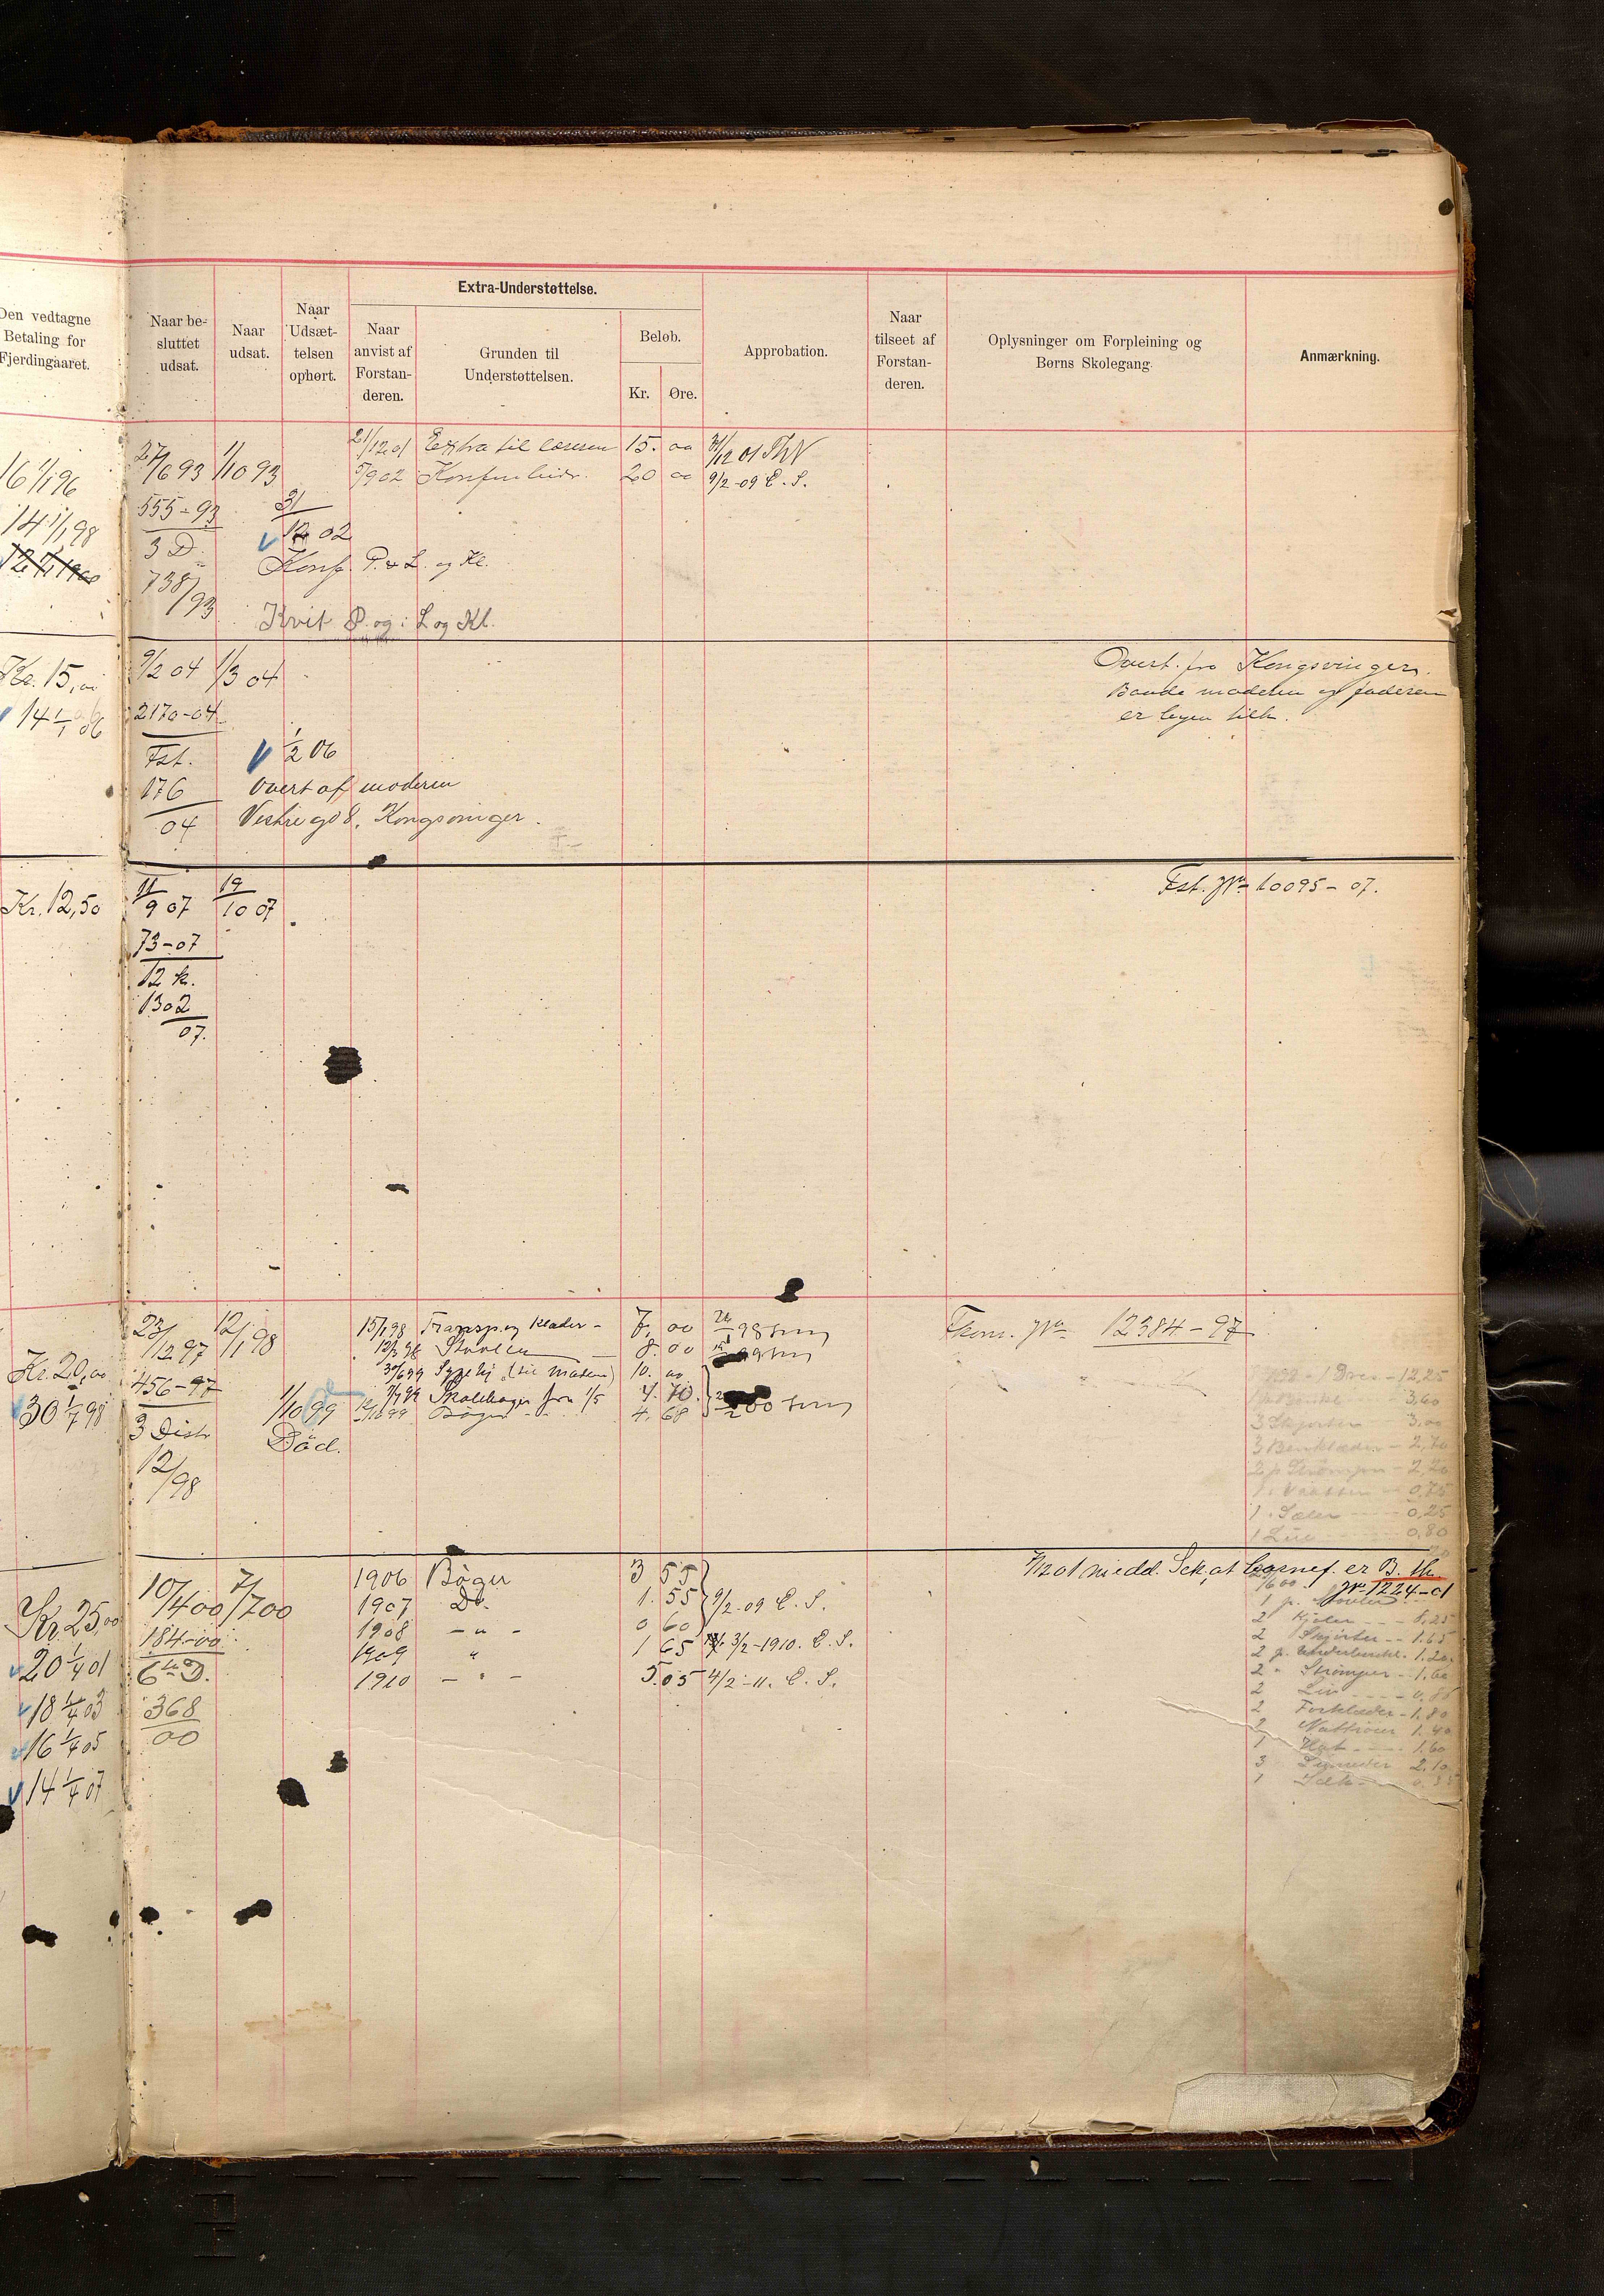 Den vedtagne
Betaling for
Fjerdingaaret.
Naar be-
sluttet
udsat.
Naar
udsat.
Naar
Udsæt-
telsen
ophørt.
Extra-Understøttelse.
Naar
anvist af
Forstan-
deren.
Grunden til
Understøttelsen.
Beløb.
Kr.
Øre.
Approbation.
Naar
tilseet af
Forstan-
deren.
Oplysninger om Forpleining og
Børns Skolegang.
Anmærkning.
16 1/1 96
14 1/1 98
27/6 93 1/10 93
21/12 01 Extra til læsesen 15. 00 31/12 01 ThN
5/9 02 20 00 9/2-09 E. S.
555-93
3 D.
738/93
31/12 02
Konf. P. & L. og Kl.
Kvit P. og i L og Kl.
Kr. 15,00
14 1/1 06
9/2 04 1/3 04
2170-04
Fst.
176
04
1/2 06
overt af moderen
Kongsvinger.
Overt. fra Kongsvinger.
Baade moderen og faderen
er
Kr. 12,50
11/9 07 19/10 07
73-07
12 k.
1302
07.
Fst. No 10095-07.
Kr. 20,00
30 1/7 98
23/12 97 12/1 98
456-97
3 Distr
12/98
1/10 99
Död.
15/1 98 Transp. og klæder - 7, 00
12/3 98 Støvlen 8. 00
30/6 99 (til Maten) 10. 00
7/7 99 Skolebøger fra 1/5 7. 70.
Bøger 4, 68
Fkom. No 12384-97
1 Drez - 12,25
3,60
3 Skjorter 3,00
3 Benklæder - 2,70
2 p Strømper - 2,20
0,75
1 Seler - 0,25
1 Lue 0,80
Kr. 25,00
20 1/4 01
18 1/4 03
16 1/4 05
14 1/4 07
10/4 00 7/7 00
184-00
6te D.
368
00
1906 Bøger 3 55
1907 Do. 1. 55 9/2-09 E. S.
1908 - " - 0 60
1909 " 1 65 3/2-1910. E. S.
1910 - " - 5. 05 4/2-11. E. S.
7/12 01 medd. Sek, at barnef. er B. th.
No 1224-01
2 Kjoler - - 8,25
2 Skjorter - - 1.65
2 p. Underbenkl. 1.20
2 " Strømper - 1.60
2 Liv
2 Forklæder - 1.80
2 Nattrøier 1.40
1 Hat - - 1.60
3 2.10
1